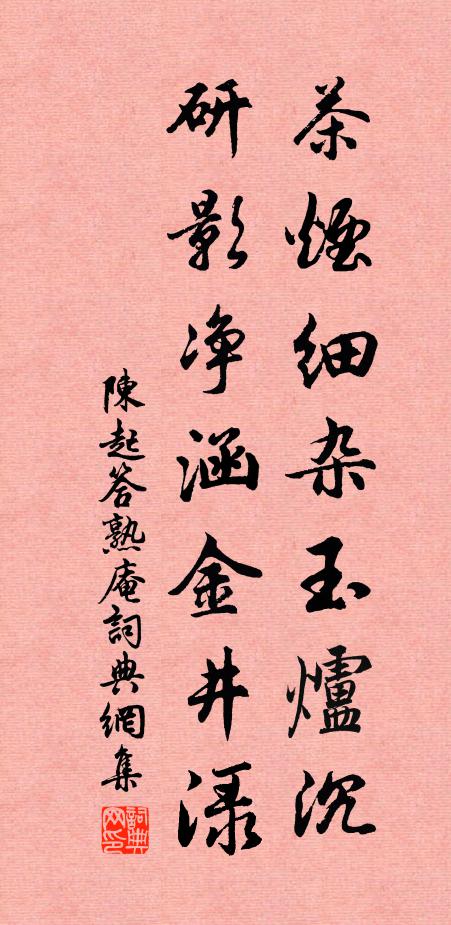 茶煙细杂玉爐沉
研影净涵金井渌
陳起答熟庵詞典網集
詞典网印